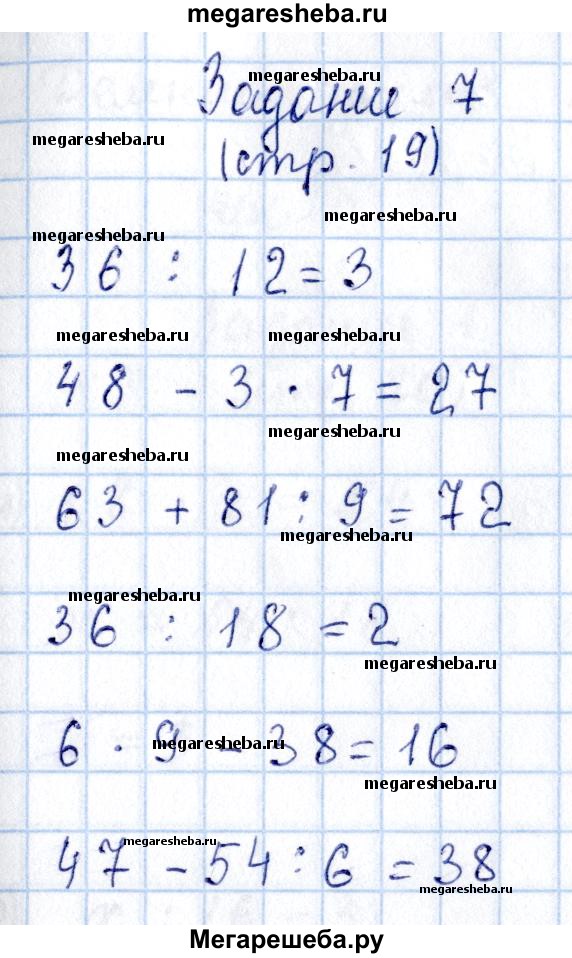 megaresheba.ru
megaresheba.ru
Задание 7
megaresheba.ru
(стр. 19)
megaresheba.ru
megaresheba.ru
36 : 12 = 3
megaresheba.ru megaresheba.ru
48 - 3 · 7 = 27
megaresheba.ru
megaresheba.ru
63 + 81 : 9 = 72
megaresheba.ru
megaresheba.ru
36 : 18 = 2
megaresheba.ru
6 · 9 - 38 = 16
megaresheba.ru
megaresheba.ru
megaresheba.ru
47 - 54 : 6 = 38
megaresheba.ru
Мегарешеба.ру